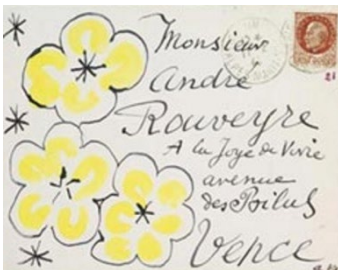 Monsieur
andré
Rouveyre
A la Joye de Vivre
avenue
des Poilus
Vence